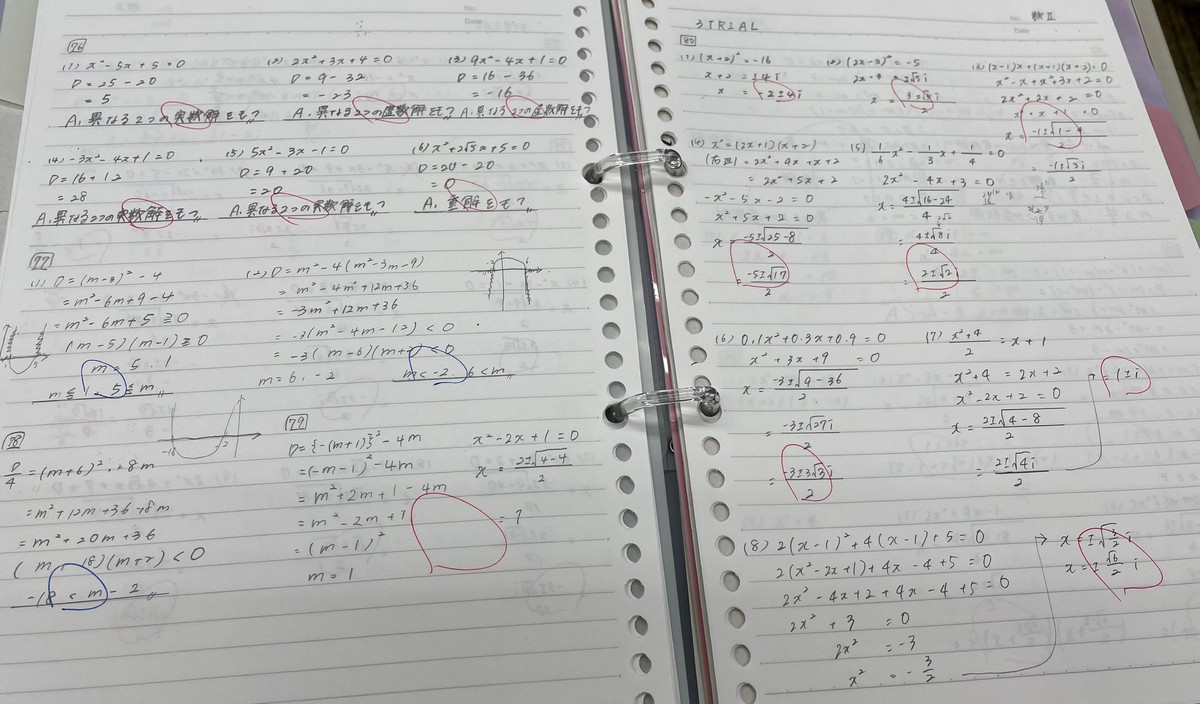 76
(1) x²-5x+5=0
D=25-20
=5
A. 異なる2つの実数解をもつ
(2) 2x²+3x+4=0
D=9-32
=-23
A. 異なる2つの虚数解をもつ
(3) 9x²-4x+1=0
D=16-36
=-16
A. 異なる2つの虚数解をもつ
(4) -3x²-4x+1=0
D=16+12
=28
A. 異なる2つの実数解をもつ
(5) 5x²-3x-1=0
D=9+20
=20
A. 異なる2つの実数解をもつ
(6) x²+2√5x+5=0
D=20-20
=0
A. 重解をもつ
77
(1) D=(m-3)²-4
=m²-6m+9-4
=m²-6m+5≧0
(m-5)(m-1)≧0
m=5, 1
m≦1, 5≦m
(2) D=m²-4(m²-3m-9)
=m²-4m²+12m+36
=-3m²+12m+36
=-3(m²-4m-12)<0
=-3(m-6)(m+2)<0
m=6, -2
m<-2, 6<m
78
D/4=(m+6)²+8m
=m²+12m+36+8m
=m²+20m+36
(m+18)(m+2)<0
-18<m<-2
-18
-2
79
D={-(m+1)}²-4m
=(-m-1)²-4m
=m²+2m+1-4m
=m²-2m+1
=(m-1)²
m=1
x²-2x+1=0
x=(2±√4-4)/2
=1
3TRIAL
No. 数Ⅱ
Date
80
(1) (x+2)²=-16
x+2=±4i
x=-2±4i
(2) (2x-3)²=-5
2x-3=±√5i
x=(3±√5i)/2
(3) (x-1)x+(x+1)(x+2)=0
x²-x+x²+3x+2=0
2x²+2x+2=0
x²+x+1=0
x=(-1±√1-4)/2
=(-1±√3i)/2
(4) x²=(2x+1)(x+2)
(右辺)=2x²+4x+x+2
=2x²+5x+2
-x²-5x-2=0
x²+5x+2=0
x=(-5±√25-8)/2
=(-5±√17)/2
(5) 1/6x²-1/3x+1/4=0
2x²-4x+3=0
x=(4±√16-24)/4
=(4±√8i)/4
=(2±√2i)/2
(6) 0.1x²+0.3x+0.9=0
x²+3x+9=0
x=(-3±√9-36)/2
=(-3±√27i)/2
=(-3±3√3i)/2
(7) (x²+4)/2=x+1
x²+4=2x+2
x²-2x+2=0
x=(2±√4-8)/2
=(2±√4i)/2
=1±i
(8) 2(x-1)²+4(x-1)+5=0
2(x²-2x+1)+4x-4+5=0
2x²-4x+2+4x-4+5=0
2x²+3=0
2x²=-3
x²=-3/2
x=±√3/2i
x=±√6/2i